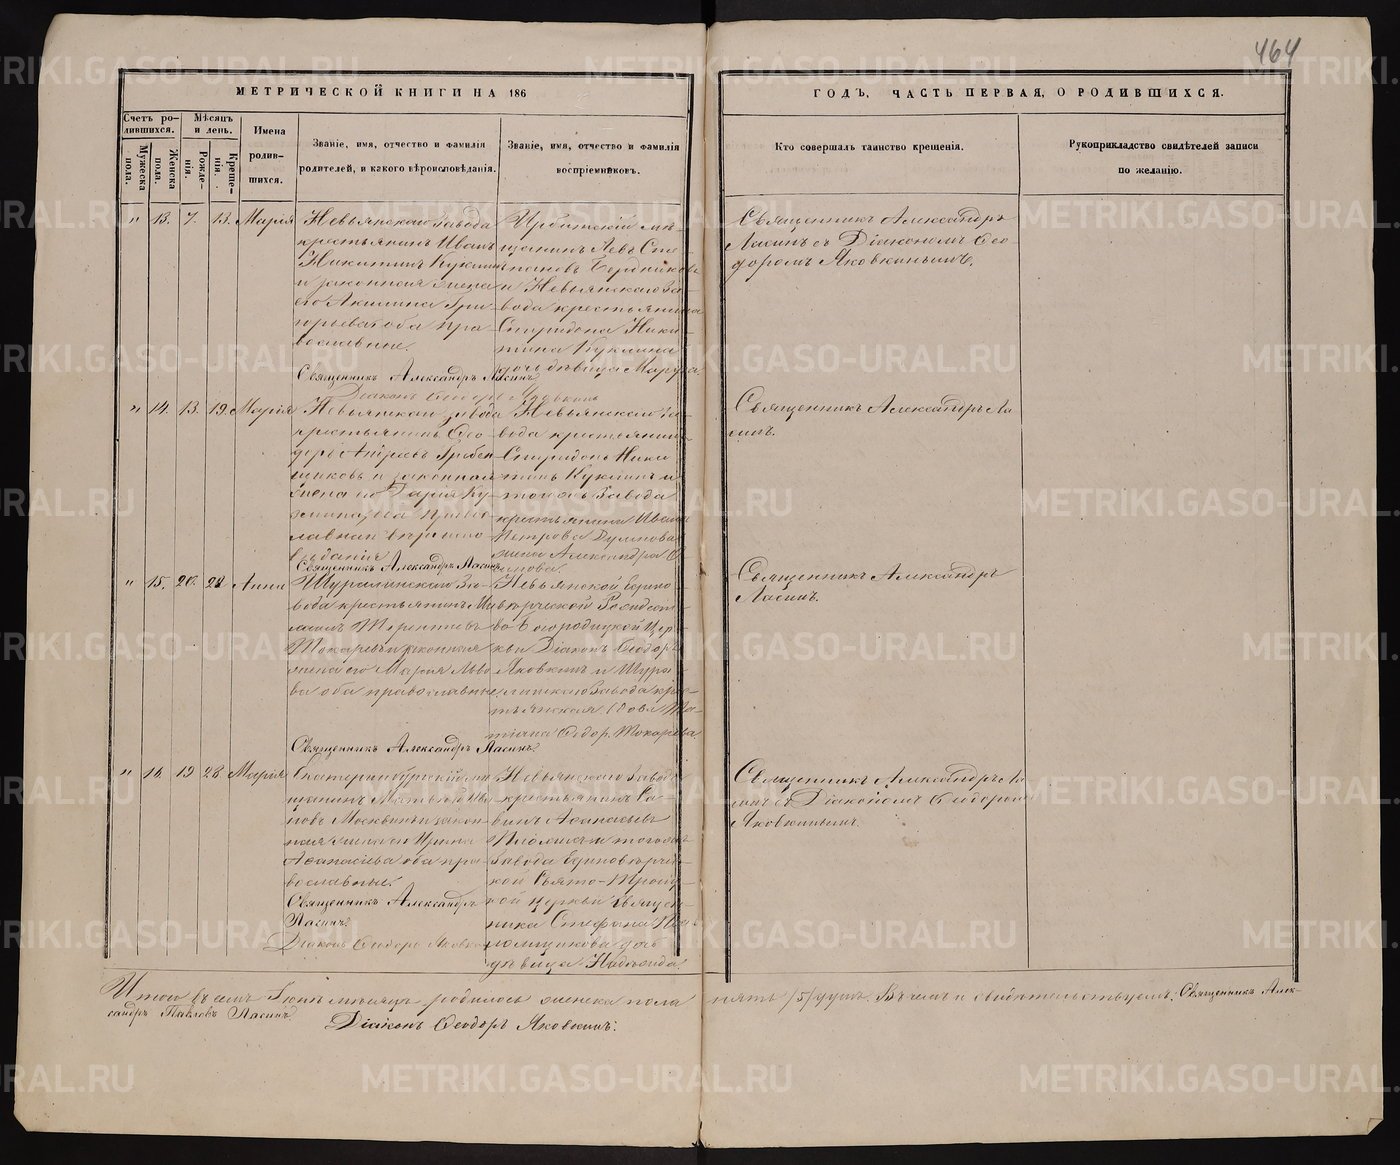 464
МЕТРИЧЕСКОЙ КНИГИ НА 186
ГОДЪ, ЧАСТЬ ПЕРВАЯ, О РОДИВШИХСЯ.
Счетъ ро-
дившихся.
Мужеска
пола.
Женска
пола.
Мѣсяцъ
и день.
Рожде-
нія.
Креще-
нія.
Имена
родив-
шихся.
Званіе, имя, отчество и фамилія
родителей, и какого вѣроисповѣданія.
Званіе, имя, отчество и фамилія
воспріемниковъ.
Кто совершалъ таинство крещенія.
Рукоприкладство свидѣтелей записи
по желанію.
" 13. 7. 13. Марія
Невьянскаго Завода
крестьянинъ Иванъ
Никитинъ Куклинъ
и законная жена
его Акилина Гри-
горьева оба пра-
вославные.
Священникъ Александръ Пасинъ
Діаконъ Ѳеодоръ Яковкинъ
Ирбитскій мѣ-
щанинъ Левъ Сте-
пановъ Бердниковъ
и Невьянскаго За-
вода крестьянина
Спиридона Ники-
тина Куклина
дочь дѣвица Марѳа
Священникъ Александръ
Пасинъ съ Діакономъ Ѳео-
доромъ Яковкинымъ.
" 14. 13. 19. Марія
Невьянскаго Завода
крестьянинъ Ѳео-
доръ Андреевъ Гребен-
щиковъ и законная
жена его Дарія Ку-
славная
Священникъ Александръ Пасинъ
Невьянскаго За-
вода крестьянинъ
Спиридонъ Ники-
тинъ Куклинъ и
тогожъ Завода
крестьянина Ивана
Петрова
жена Александра
Священникъ Александръ Па-
синъ.
" 15. 20. 28. Анна
Шуралинскаго За-
вода крестьянинъ Ми-
хаилъ Терентьевъ
Токаревъ и законная
жена его Марія Льво-
ва оба православные
Священникъ Александръ Пасинъ.
Невьянской Едино-
вѣрческой Рождест-
во Богородицкой Цер-
кви Діаконъ Ѳеодоръ
Яковкинъ и Шура-
линскаго Завода крес-
тьянская вдова Та-
тіана Ѳедор. Токарева.
Священникъ Александръ
Пасинъ.
" 16. 19 28. Марія
Екатеринбургскій мѣ-
щанинъ Матвей Ива-
новъ Москвинъ и закон-
ная жена его Ирина
Аѳанасьева оба пра-
вославные.
Священникъ Александръ
Пасинъ.
Діаконъ Ѳеодоръ Яковкинъ
Невьянскаго Завода
крестьянинъ Са-
винъ Аѳанасьевъ
и тогожъ
Завода Единовѣрчес-
кой Свято-Троиц-
кой церкви Священ-
ника Стефана
дочь
дѣвица Надежда.
Священникъ Александръ Па-
синъ съ Діакономъ Ѳеодоромъ
Яковкинымъ.
Итого въ семъ Іюнѣ мѣсяцѣ родилось женска пола пять /5/ душъ. Въ чемъ и свидѣтельствуемъ, Священникъ Алек-
сандръ Павловъ Пасинъ
Діаконъ Ѳеодоръ Яковкинъ.